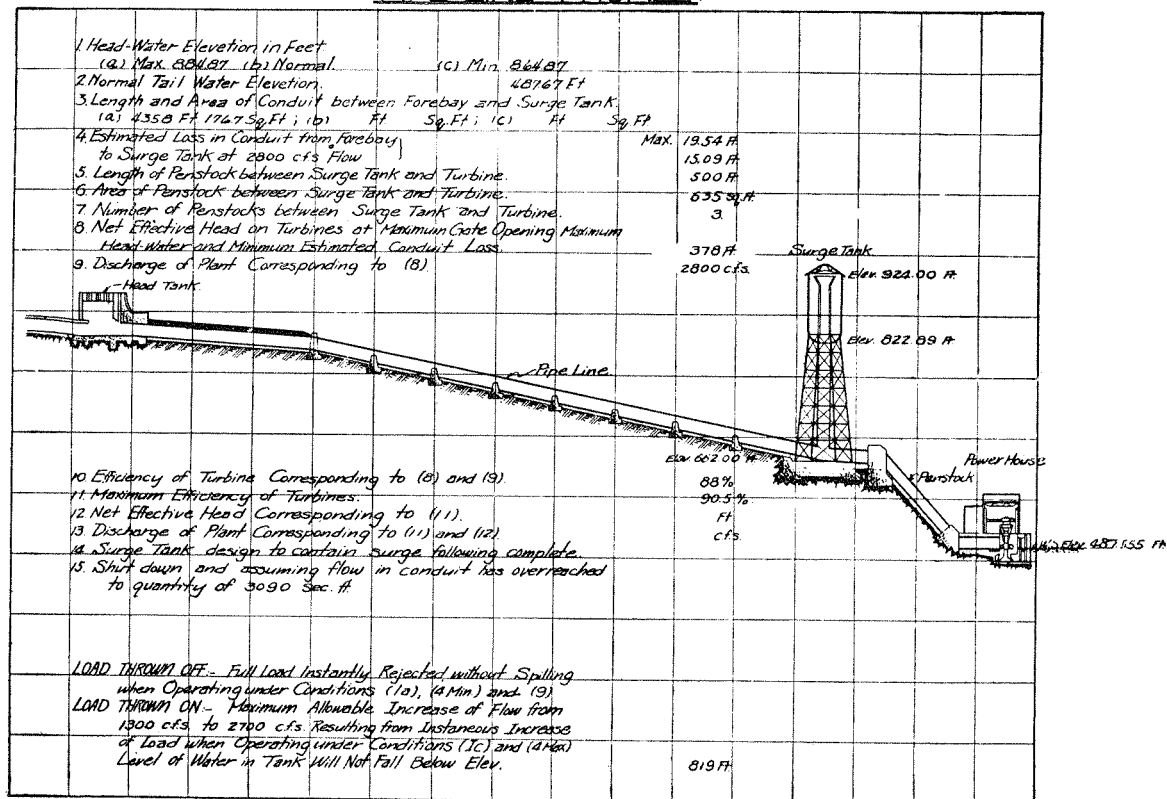 1. Head-Water Elevetion in Feet
(a) Max. 884.87 (b) Normal. (c) Min. 864.87
2. Normal Tail Water Elevetion. 487.67 Ft
3. Length and Area of Conduit between Forebay and Surge Tank.
(a) 4358 Ft 1767 Sq.Ft; (b) Ft Sq.Ft; (c) Ft Sq.Ft
4. Estimated Loss in Conduit from Forebay Max. 19.54 Ft.
to Surge Tank at 2800 cfs Flow 15.09 Ft.
5. Length of Penstock between Surge Tank and Turbine. 500 Ft
6. Area of Penstock between Surge Tank and Turbine. 635 sq.ft.
7. Number of Penstocks between Surge Tank and Turbine. 3.
8. Net Effective Head on Turbines at Maximum Gate Opening Maximum
Head-Water and Minimum Estimated Conduit Loss. 378 Ft
9. Discharge of Plant Corresponding to (8). 2800 cfs.
Surge Tank
Elev. 924.00 Ft
Head Tank
Elev. 822.89 Ft
Pipe Line
Elev. 662.00 Ft
Power House
Penstock
Elev. 487.555 Ft
10. Efficiency of Turbine Corresponding to (8) and (9). 88%
11. Maximum Efficiency of Turbines. 90.5%
12. Net Effective Head Corresponding to (11). Ft
13. Discharge of Plant Corresponding to (11) and (12). cfs.
14. Surge Tank design to contain surge following complete
15. Shut down and assuming flow in conduit has overreached
to quantity of 3090 Sec. ft.
LOAD THROWN OFF:- Full Load Instantly Rejected without Spilling
when Operating under Conditions (1a), (4 Min) and (9)
LOAD THROWN ON:- Maximum Allowable Increase of Flow from
1300 cfs. to 2700 cfs. Resulting from Instaneous Increase
of Load when Operating under Conditions (1c) and (4 Max)
Level of Water in Tank Will Not Fall Below Elev. 819 Ft